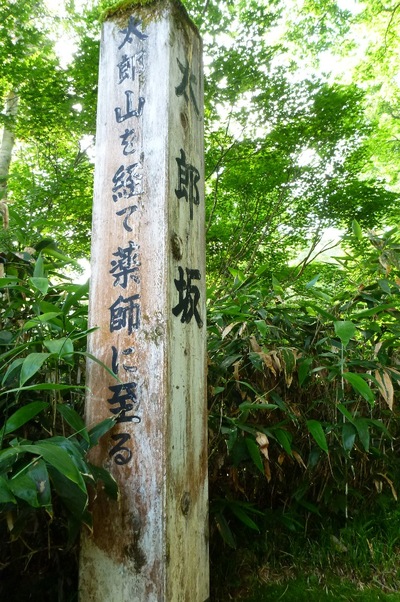 太郎坂
太郎山を経て薬師に至る